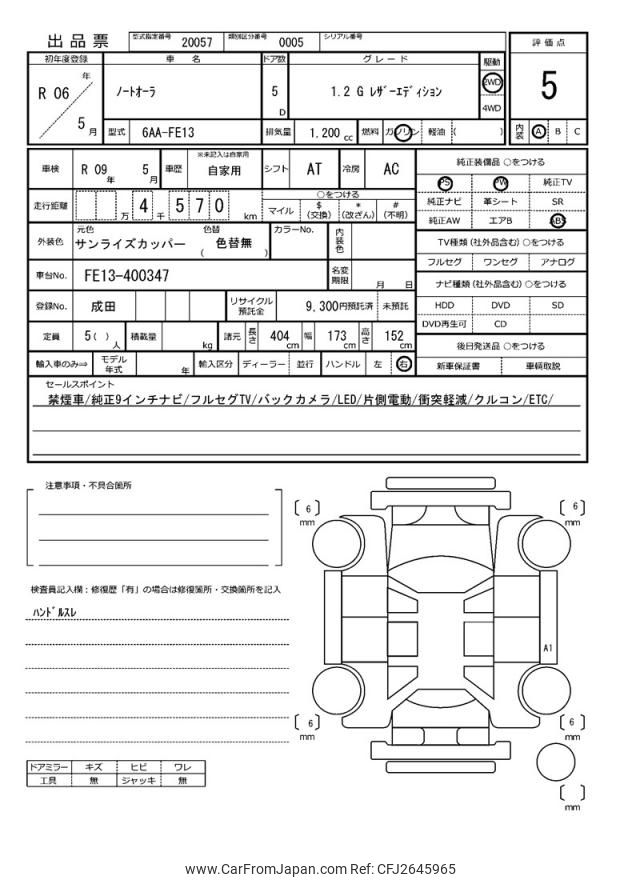 出品票 型式指定番号 20057 類別区分番号 0005 シリアル番号
評価点
5
内装 A B C
初年度登録 車名 ドア数 グレード 駆動
R 06 年 5 月 ノートオーラ 5 D 1.2 G レザーエディション 2WD 4WD
型式 6AA-FE13 排気量 1.200 cc 燃料 ガソリン 軽油 ( )
車検 R 09 年 5 月 車歴 ※未記入は自家用 自家用 シフト AT 冷房 AC
走行距離 万 4 千 5 7 0 km ○をつける
マイル $ (交換) * (改ざん) # (不明)
外装色 元色 サンライズカッパー 色替 ( 色替無 ) カラーNo. 内装色
車台No. FE13-400347 名変期限 月 日
登録No. 成田 リサイクル預託金 9,300円預託済 未預託
定員 5( ) 人 積載量 kg 諸元 長さ 404 cm 幅 173 cm 高さ 152 cm
輸入車のみ⇒ モデル年式 年 輸入区分 ディーラー 並行 ハンドル 左 右
純正装備品 ○をつける
PS PW 純正TV
純正ナビ 革シート SR
純正AW エアB ABS
TV種類 (社外品含む) ○をつける
フルセグ ワンセグ アナログ
ナビ種類 (社外品含む) ○をつける
HDD DVD SD
DVD再生可 CD
後日発送品 ○をつける
新車保証書 車輌取説
セールスポイント
禁煙車/純正9インチナビ/フルセグTV/バックカメラ/LED/片側電動/衝突軽減/クルコン/ETC/
注意事項・不具合箇所
検査員記入欄：修復歴「有」の場合は修復箇所・交換箇所を記入
ハンドルスレ
ドアミラー キズ ヒビ ワレ
工具 無 ジャッキ 無
( 6 ) mm
( 6 ) mm
A1
( 6 ) mm
( 6 ) mm
( ) mm
www.CarFromJapan.com Ref: CFJ2645965